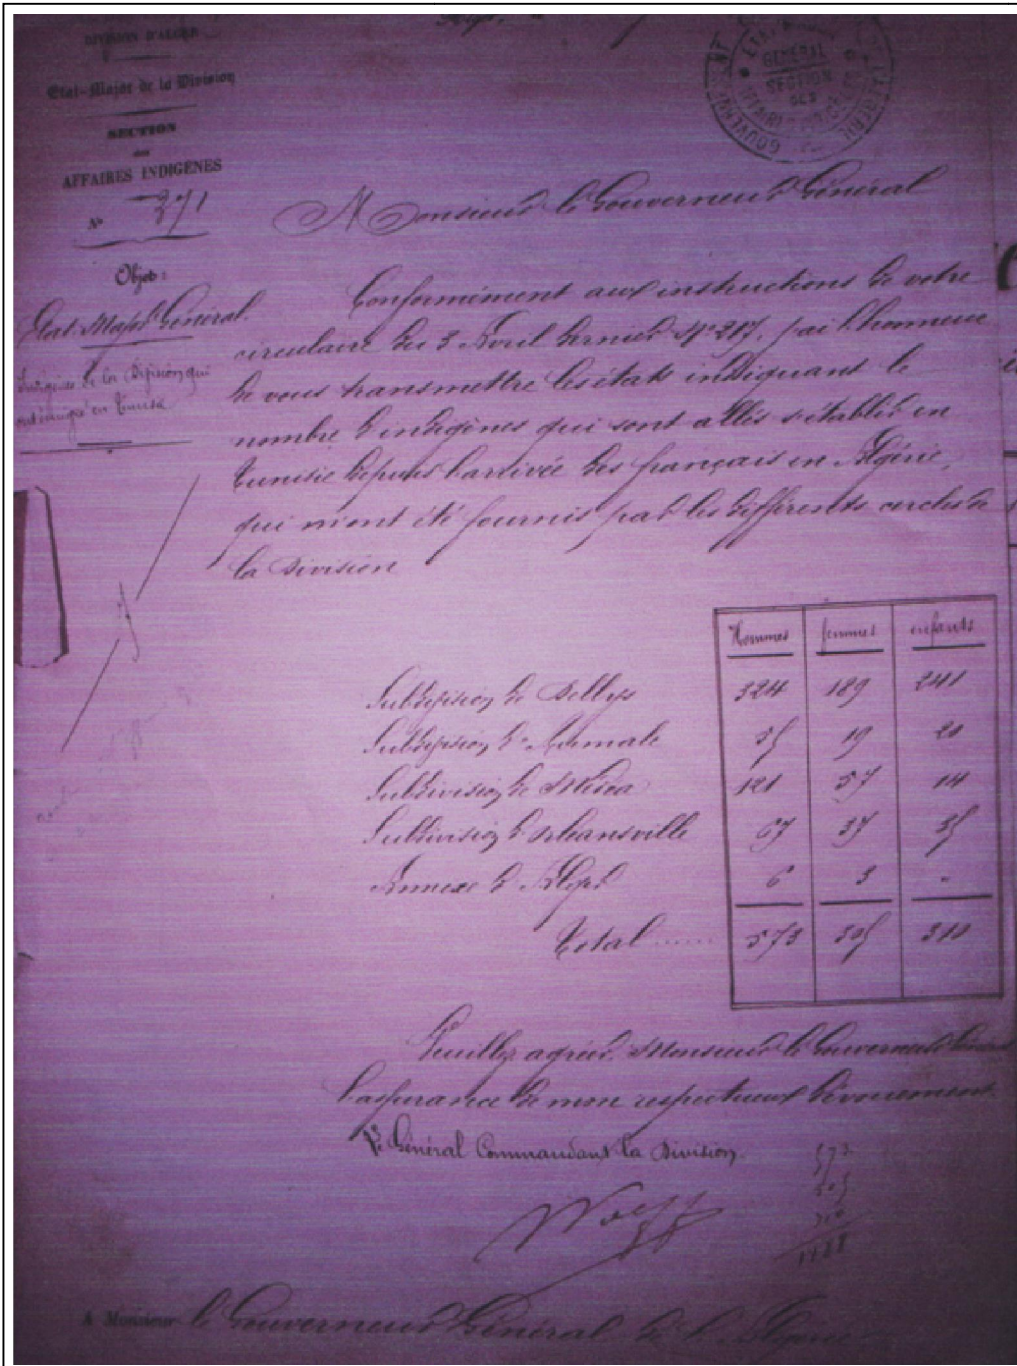 DIVISION D'ALGER
Etat-Major de la Division
SECTION
des
AFFAIRES INDIGÈNES
N° 271
GÉNÉRAL
SECTION
DES
Monsieur le Gouverneur Général
Objet:
Etat-Major Général.
Indigènes de la Division qui
ont émigré en Tunisie
Conformément aux instructions de votre
circulaire du 3 Avril dernier N° 217, j'ai l'honneur
de vous transmettre les états indiquant le
nombre d'indigènes qui sont allés s'établir en
Tunisie depuis l'arrivée des français en Algérie,
qui m'ont été fournis par les différents cercles de
la division
Hommes femmes enfants
Subdivision de Dellys 324 189 241
Subdivision d'Aumale 55 19 20
Subdivision de Médéa 121 57 14
Subdivision d'Orléansville 67 37 35
Annexe d'Alger 6 3 "
Total ...... 573 305 310
Veuillez agréer, Monsieur le Gouverneur Général
l'assurance de mon respectueux dévouement.
Le Général Commandant la Division.
573
305
310
1188
Wolff
A Monsieur le Gouverneur Général de l'Algérie